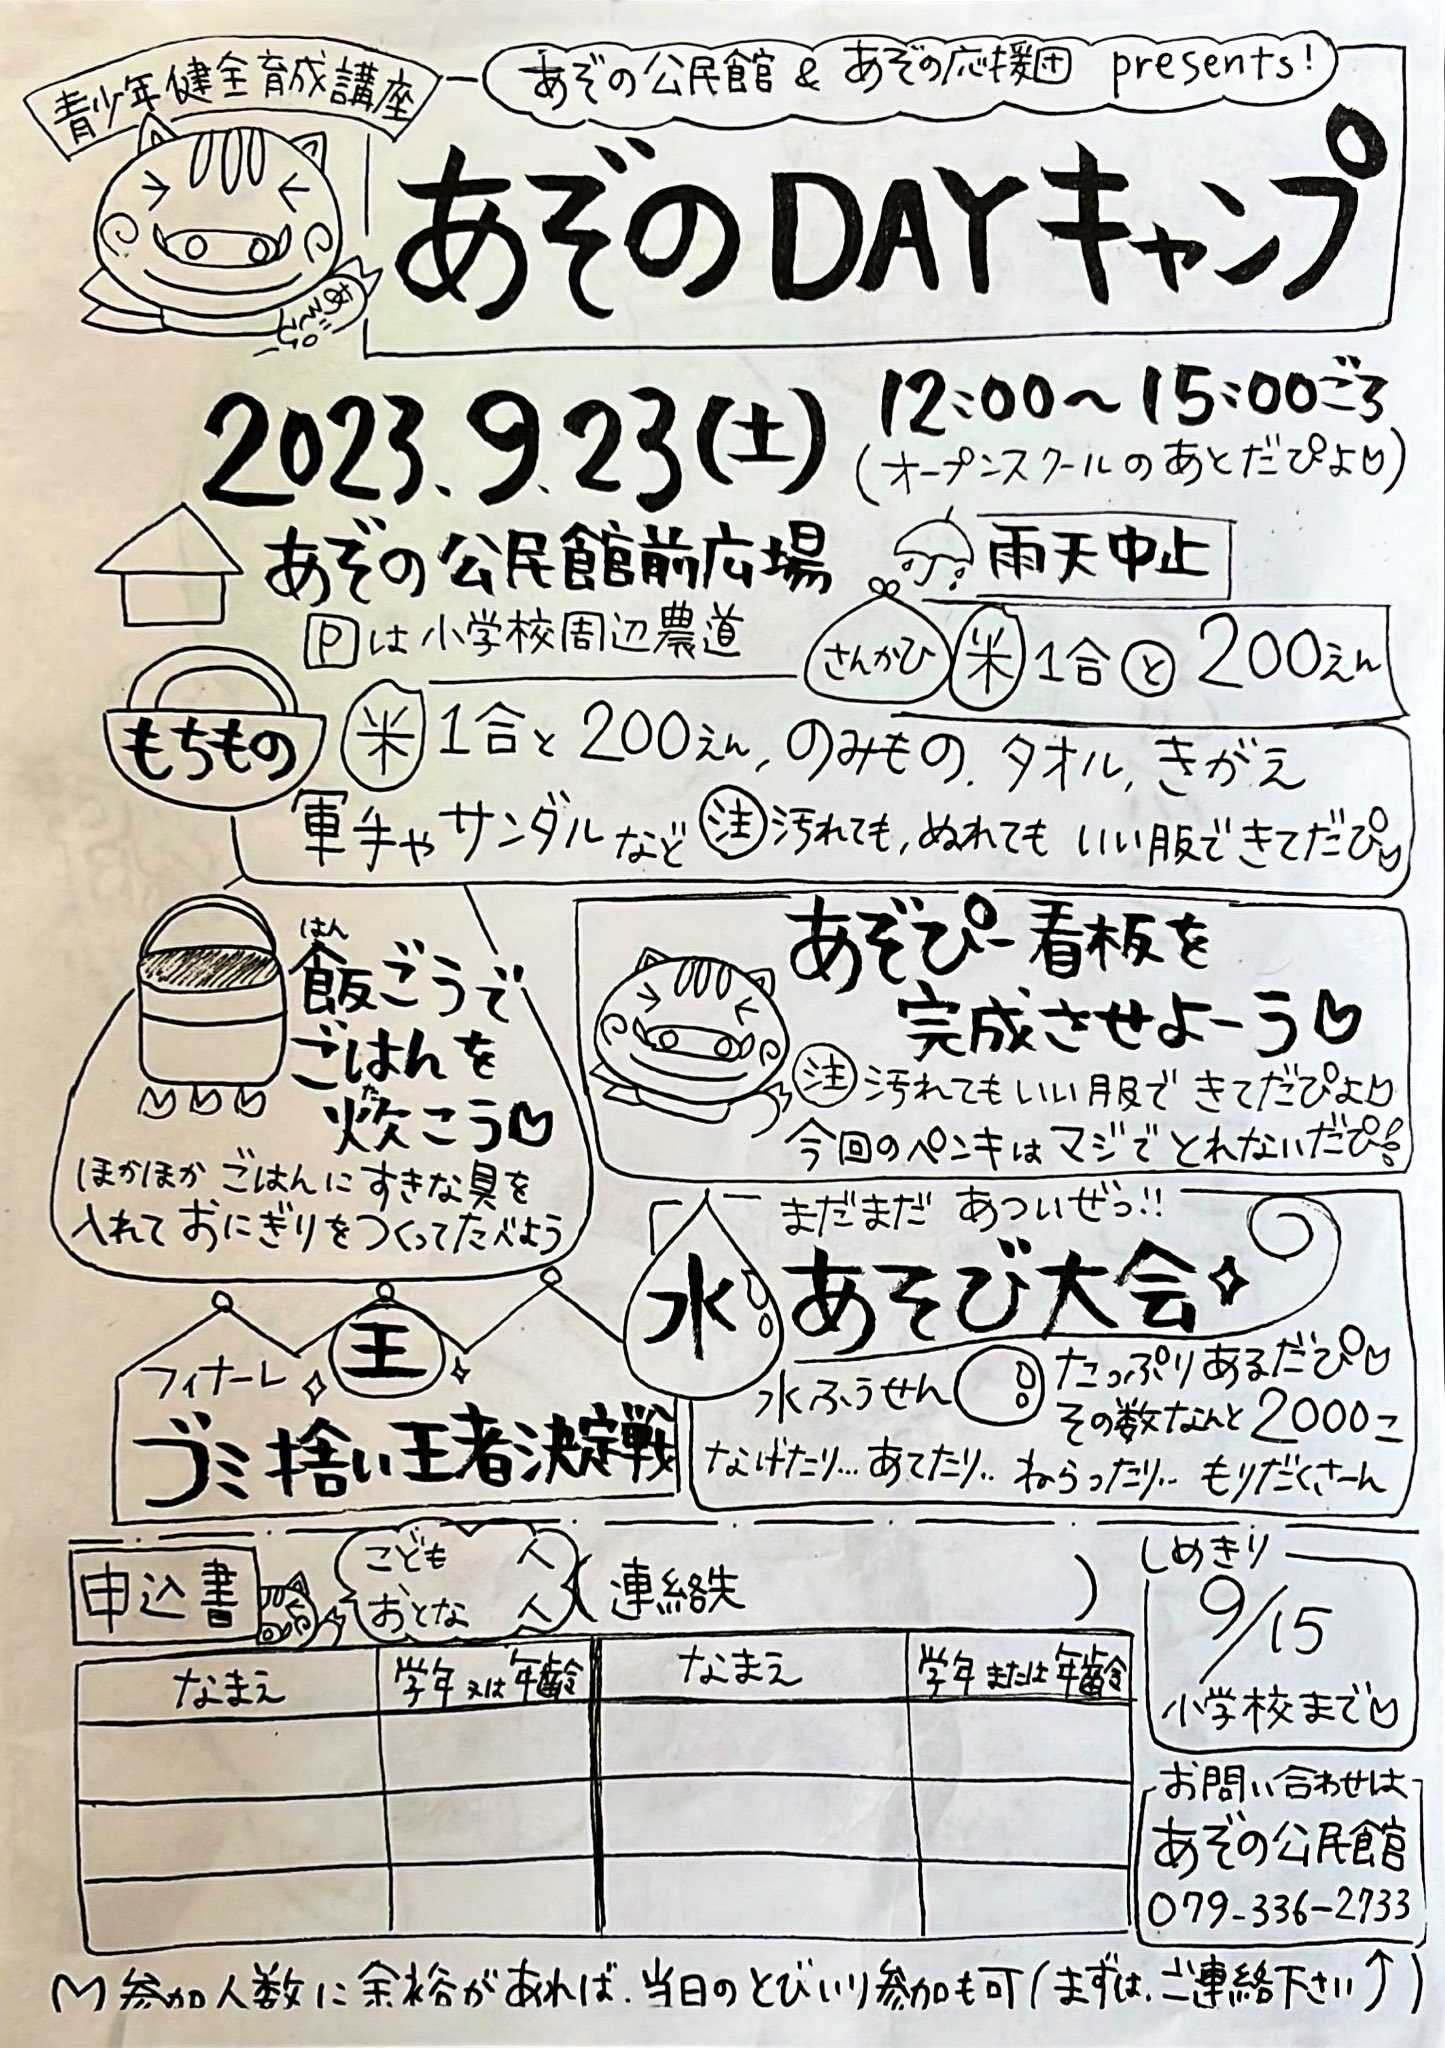 青少年健全育成講座
あぞの公民館 & あぞの応援団 presents!
あぞのDAYキャンプ
2023.9.23(土)
12:00～15:00ごろ
(オープンスクールのあとだぴよ♡)
あぞの公民館前広場
雨天中止
Pは小学校周辺農道
さんかひ 米 1合と200えん
もちもの
米 1合と200えん, のみもの、タオル, きがえ
軍手やサンダルなど 注 汚れても,ぬれてもいい服できてだぴ♡
飯ごうで
はん
ごはんを
炊こう♡
た
ほかほかごはんにすきな具を
入れておにぎりをつくってたべよう
あぞぴー看板を
完成させよーう♡
注 汚れてもいい服できてだぴよ♡
今回のペンキはマジでとれないだぴ!
まだまだあついぜっ!!
水あそび大会
水ふうせん
たっぷりあるだぴ♡
その数なんと2000こ
なげたり…あてたり‥ねらったり‥もりだくさーん
フィナーレ
王
ゴミ捨い王者決定戦
申込書
こども 人
おとな 人
(連絡先 )
しめきり
9/15
小学校まで♡
なまえ 学年又は年齢 なまえ 学年または年齢
お問い合わせは
あぞの公民館
079-336-2733
♡参加人数に余裕があれば、当日のとびいり参加も可(まずは、ご連絡下さい↑)